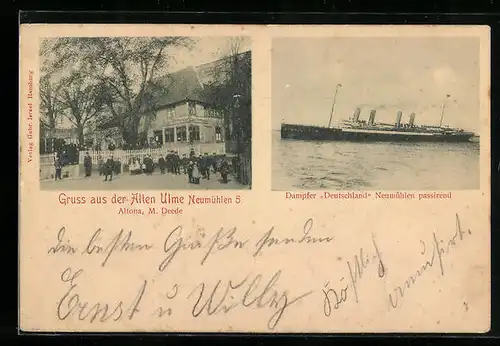 Verlag Gebr. Israel Hamburg
Gruss aus der Alten Ulme Neumühlen 8
Altona, M. Deede
Dampfer „Deutschland“ Neumühlen passirend
die besten Grüße senden
Ernst u Willy
Höstlich amusirt.